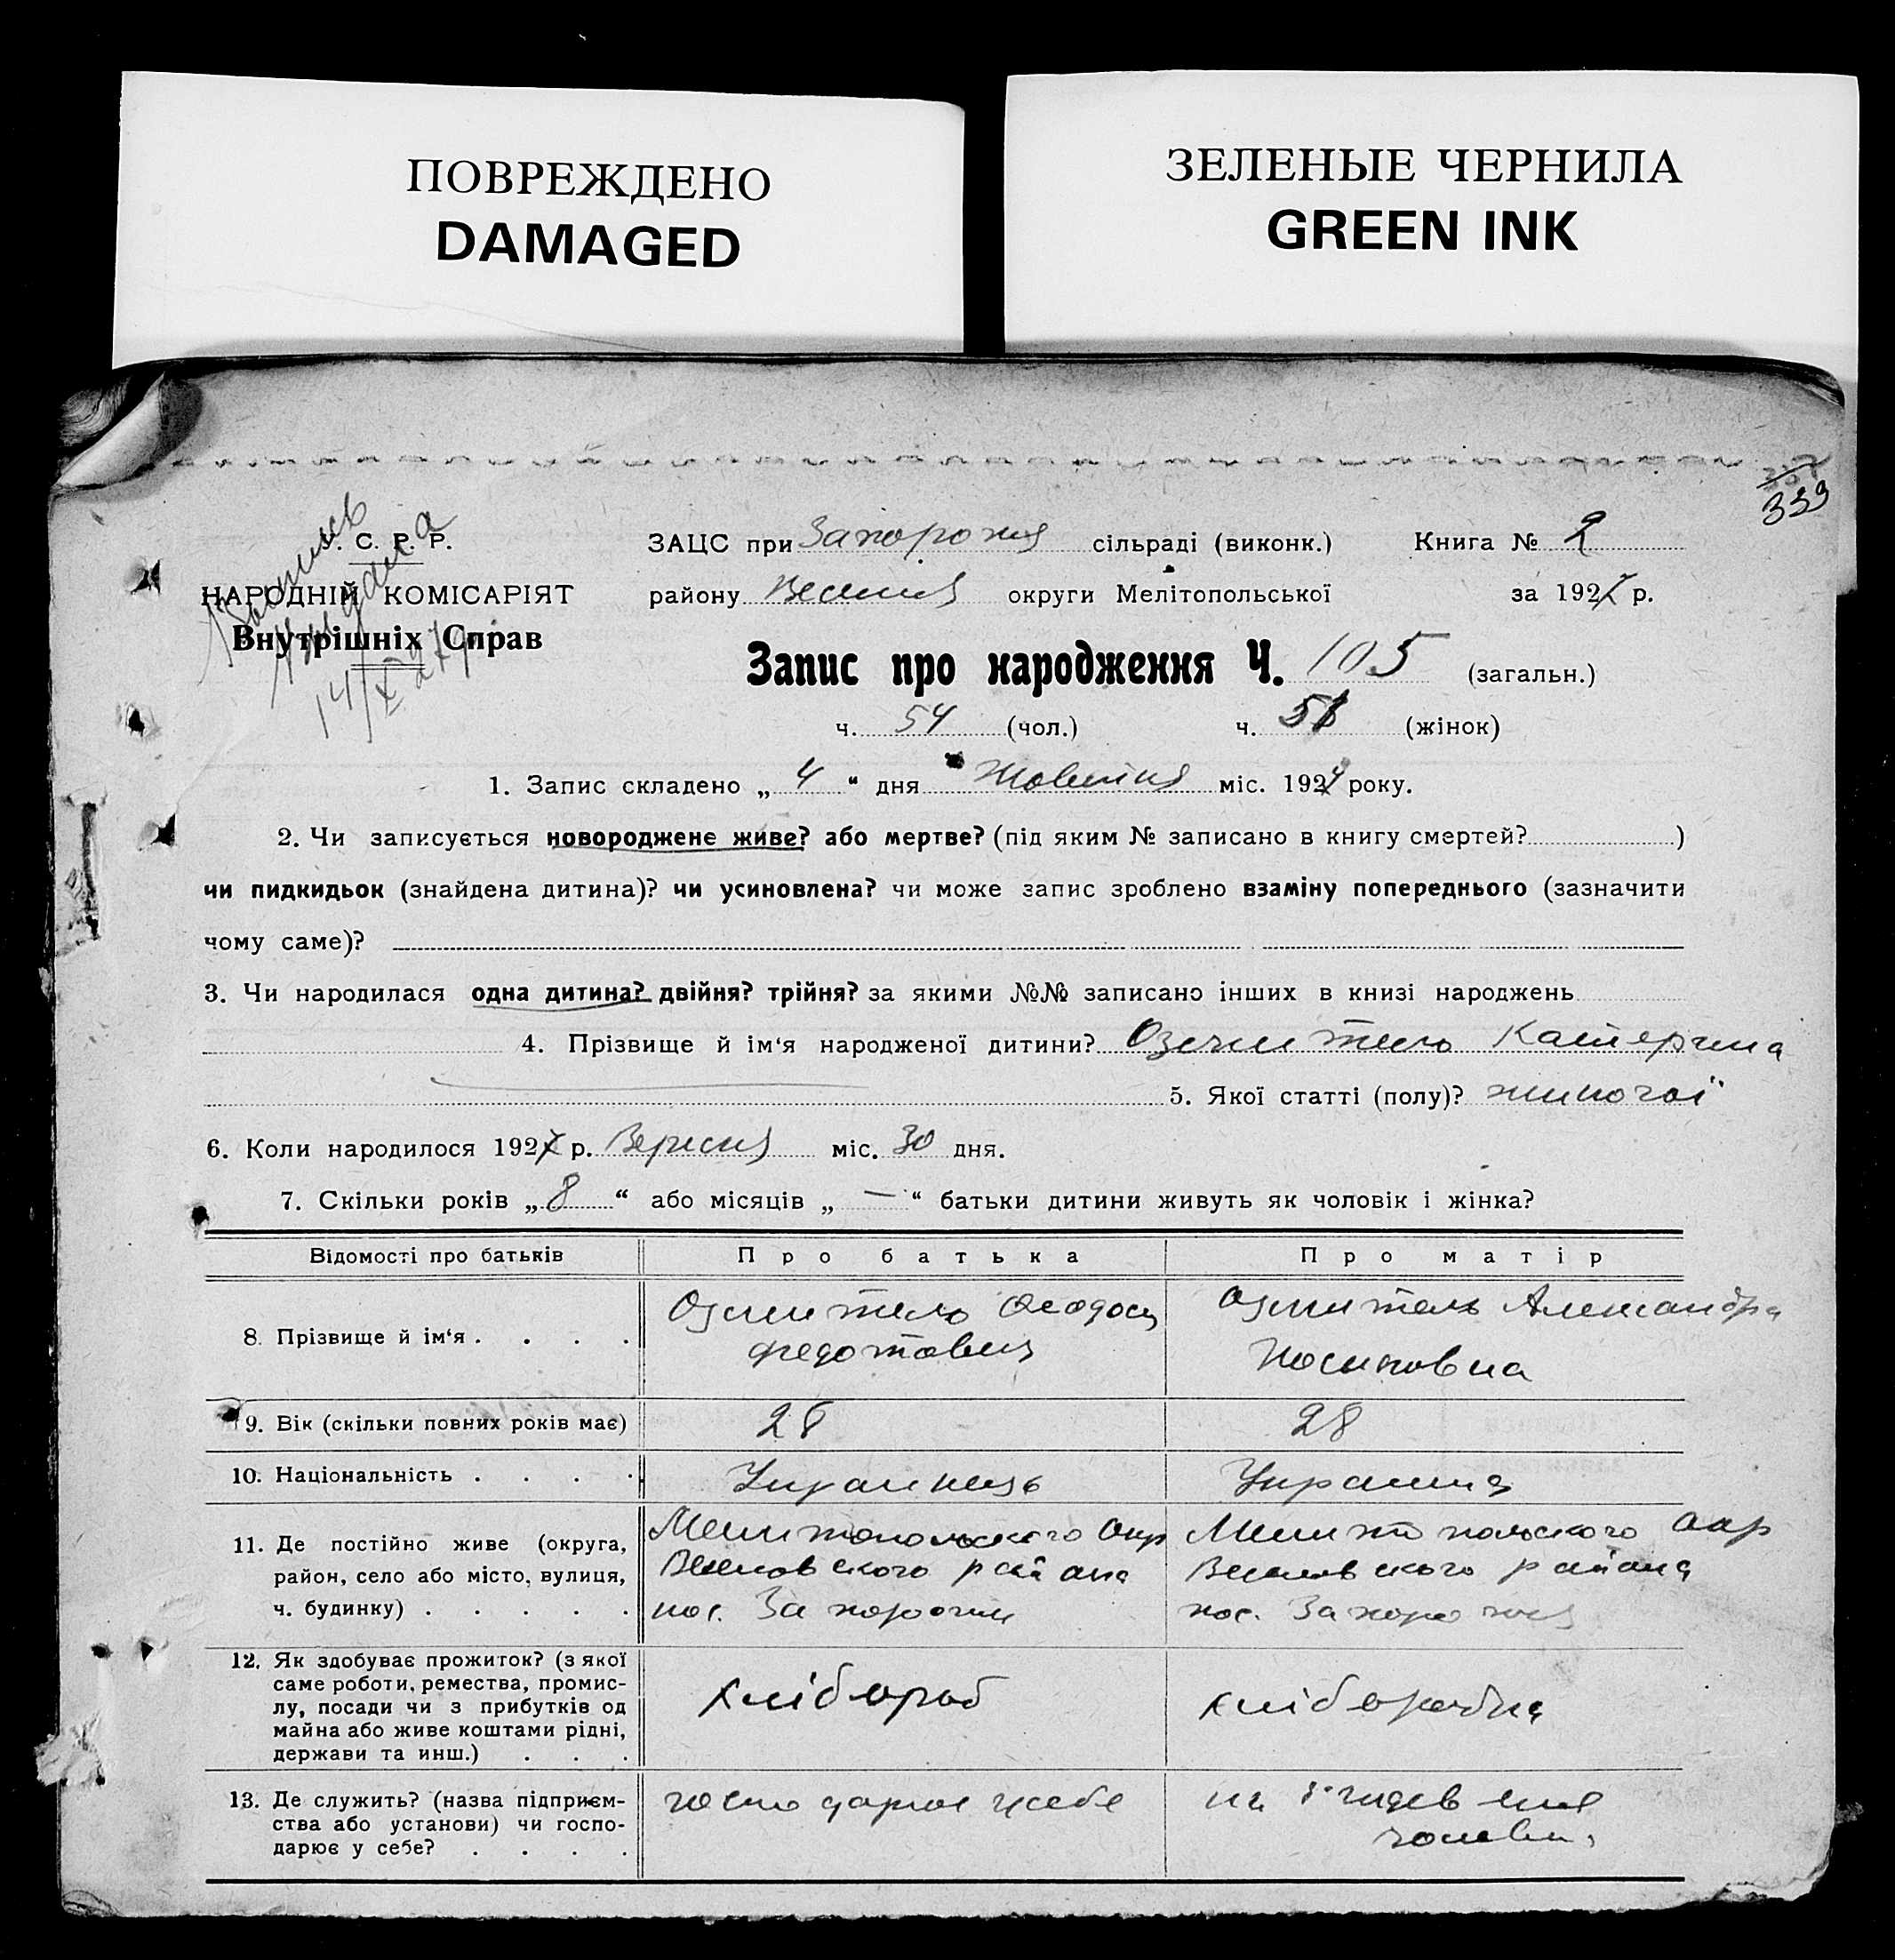 ПОВРЕЖДЕНО
DAMAGED
ЗЕЛЕНЫЕ ЧЕРНИЛА
GREEN INK
339
У. С. Р. Р.
НАРОДНІЙ КОМІСАРІЯТ
Внутрішніх Справ
ЗАЦС при Запорожя сільраді (виконк.) Книга № 2
району округи Мелітопольської за 192 р.
Запис про народження Ч. 105 (загальн.)
ч. 54 (чол.) ч. 51 (жінок)
1. Запис складено „ 4 “ дня Жовтня міс. 192 року.
2. Чи записується новороджене живе? або мертве? (під яким № записано в книгу смертей? )
чи пидкидьок (знайдена дитина)? чи усиновлена? чи може запис зроблено взаміну попереднього (зазначити
чому саме)?
3. Чи народилася одна дитина? двійня? трійня? за якими №№ записано інших в книзі народжень
4. Прізвище й ім‘я народженої дитини? Катерина
5. Якої статті (полу)? жиночої
6. Коли народилося 192 р. Вересня міс. 30 дня.
7. Скільки років „ 8 “ або місяців „ — “ батьки дитини живуть як чоловік і жінка?
Відомості про батьків Про батька Про матір
8. Прізвище й ім‘я . . . .
Александра
Федотович
Иосиповна
9. Вік (скільки повних років має) 28 28
10. Національність . . . .
11. Де постійно живе (округа, район, село або місто, вулиця, ч. будинку) . . . . .
Мелитопольского Окр
Веселовского района
пос. Запорожжя
Мелитопольского Окр
Веселовского района
пос. Запорожя
12. Як здобуває прожиток? (з якої саме роботи, ремества, промислу, посади чи з прибутків од майна або живе коштами рідні, держави та инш.) . . .
хлібороб
хліборобка
13. Де служить? (назва підприєм-
ства або установи) чи госпо-
дарює у себе? . . . .
господарює у себе
на